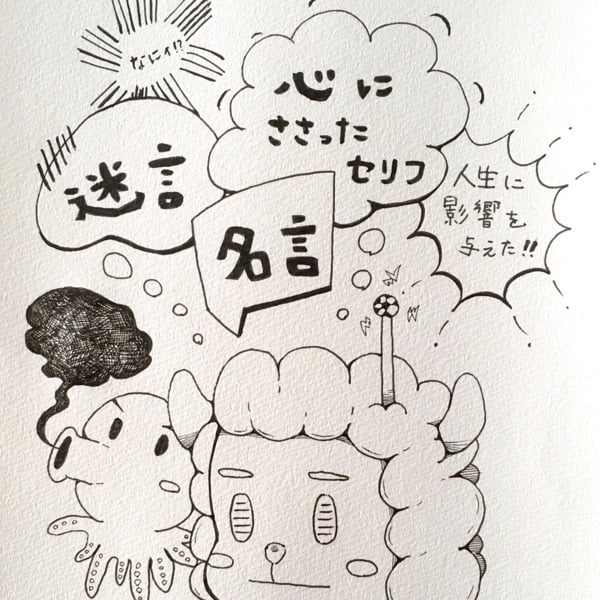 なにィ!?
心に
ささった
セリフ
迷言
名言
人生に
影響を
与えた!!